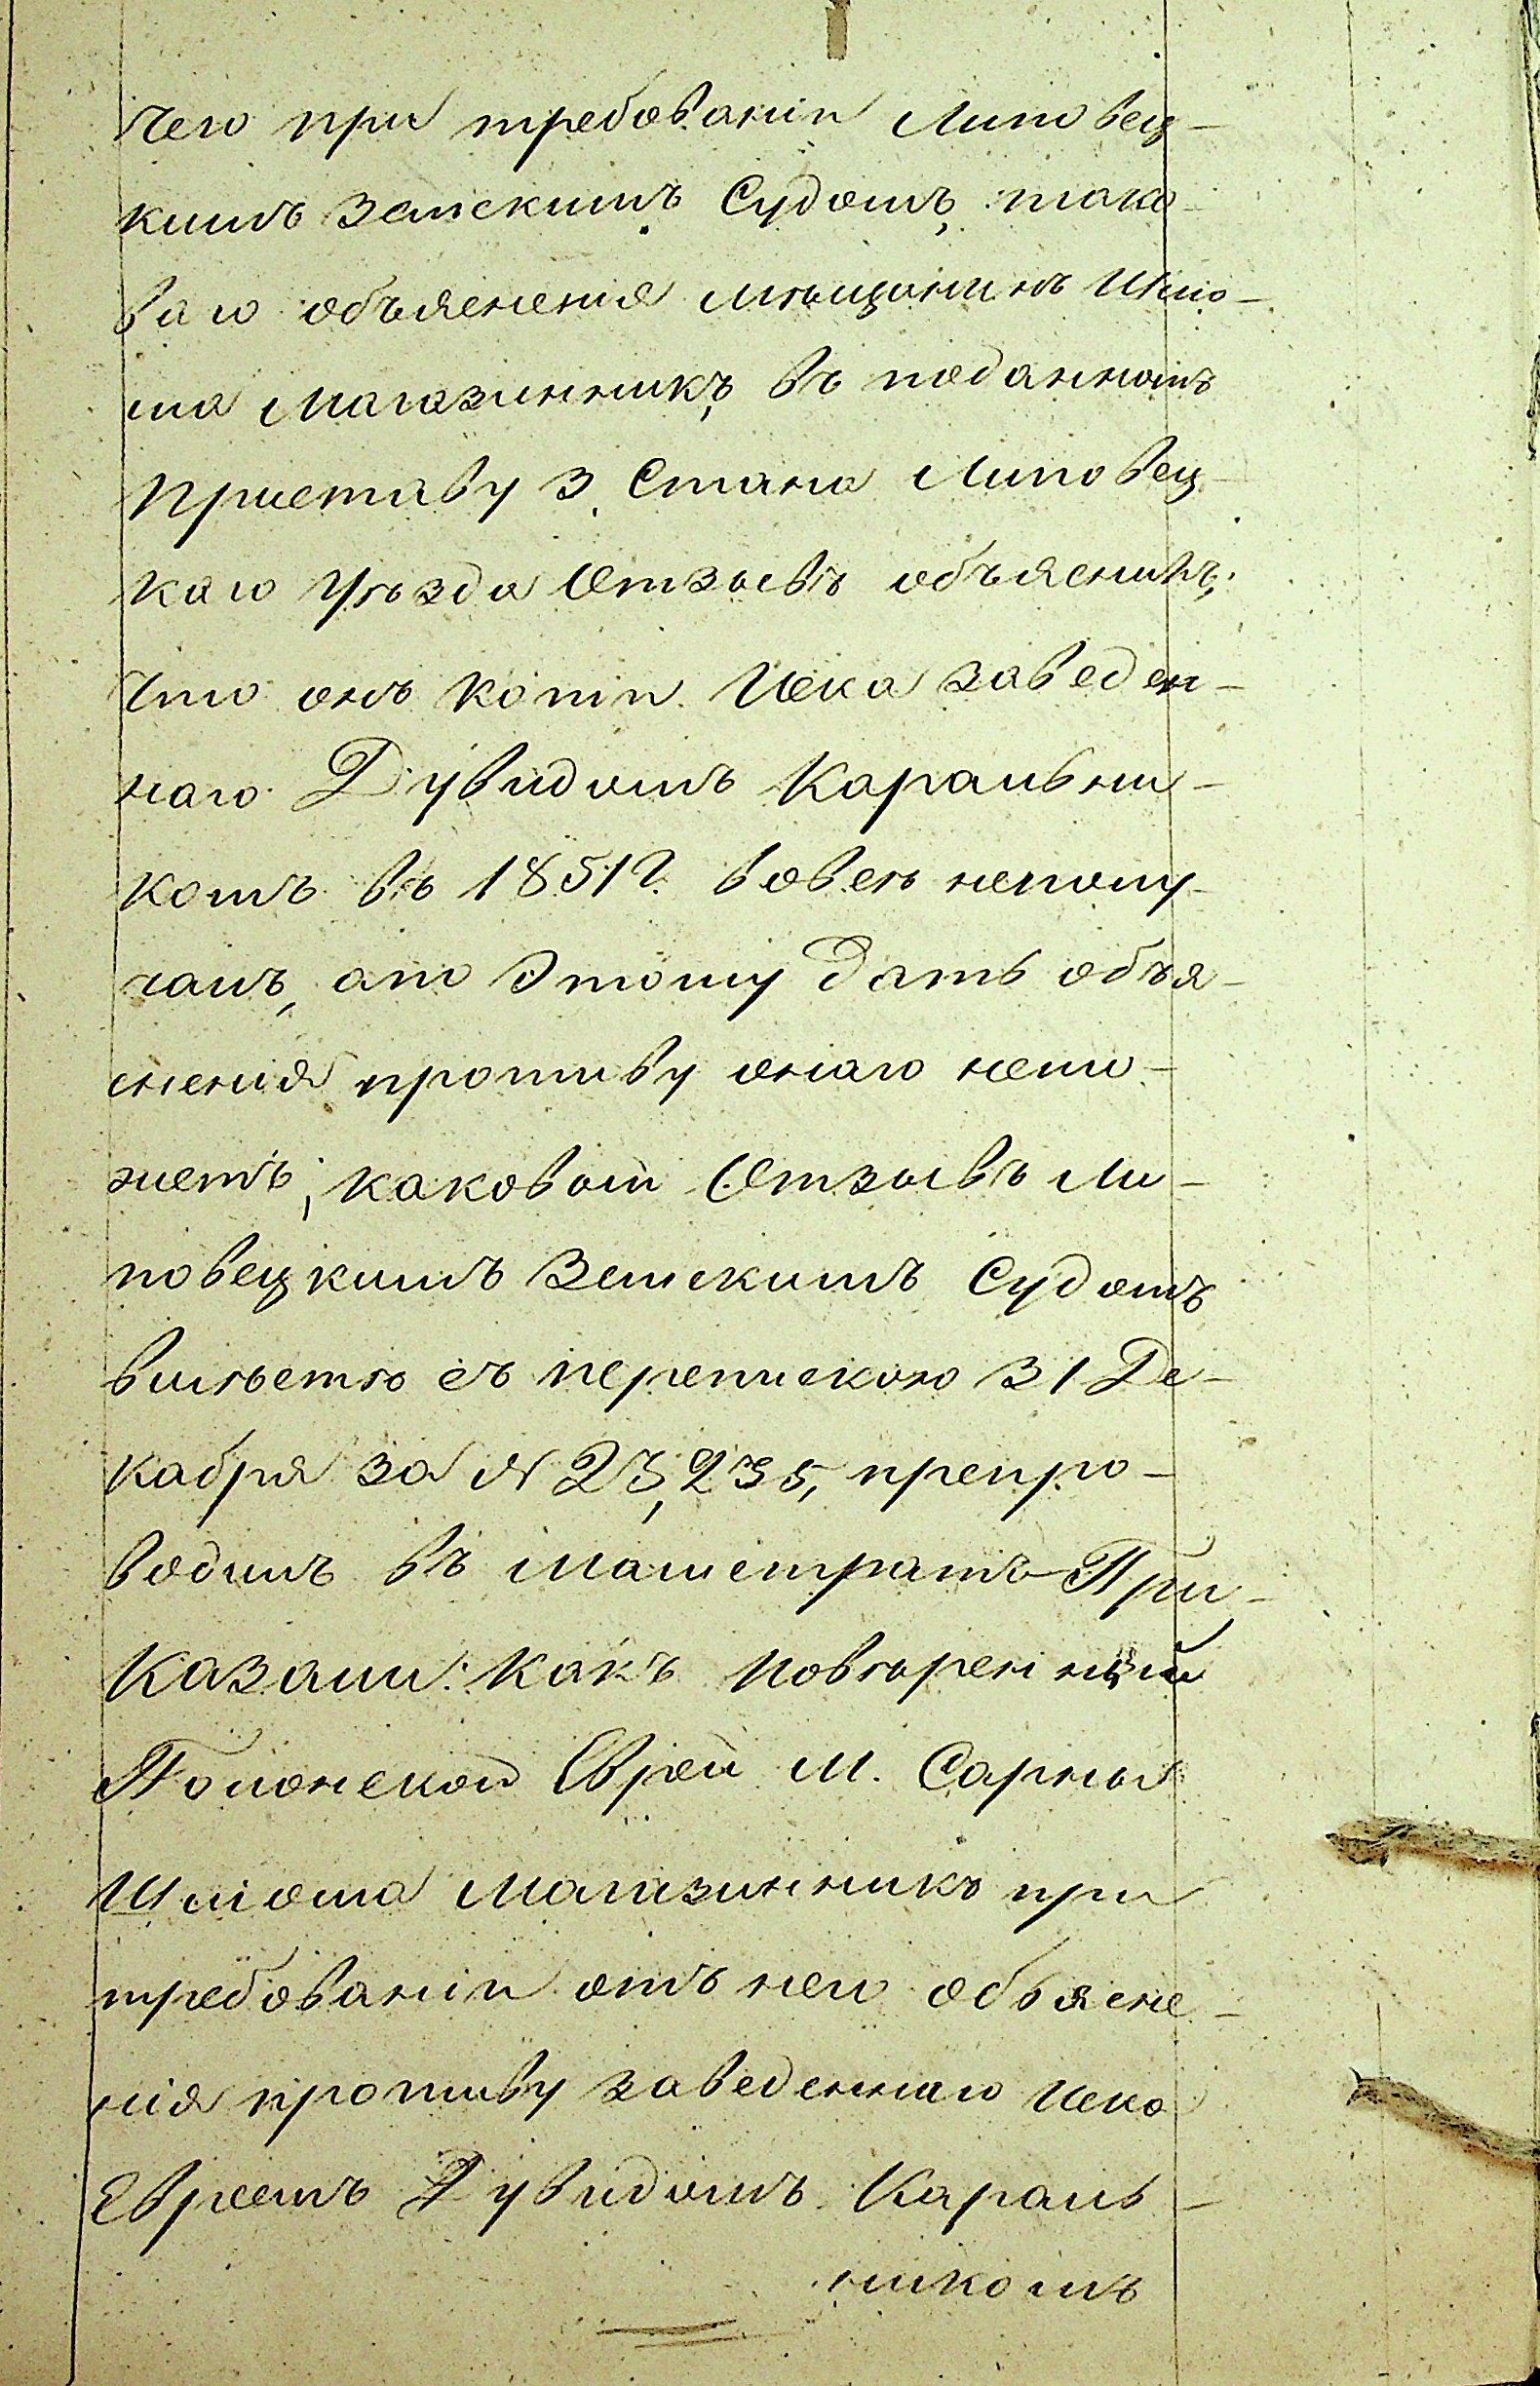 чего при требованіи Липовец-
кимъ Земскимъ Судомъ, тако-
ваго объясненія мѣщанинъ Шлио-
ма Магазинникъ, въ поданномъ
Приставу 3. Стана Липовец-
каго Уѣзда Отзывѣ объяснилъ,
что онъ копіи Иска заведен-
наго Дувидомъ Каральни-
комъ въ 1851 г. вовсе неполу-
чалъ, ато Этому дать объя-
сненія противу онаго немо-
жетъ; каковый Отзывъ Ли-
повецкимъ Земскимъ Судомъ
вмѣстѣ съ перепискою 31 Де-
кабря за № 23,235, препро-
водилъ въ Магистратъ При-
казали: какъ повѣренный
Полонской Еврей М. Сарны
Шліома Магазинникъ при
требованіи отъ него объясне-
нія противу заведеннаго Иска
Евреемъ Дувидомъ Караль-
никомъ